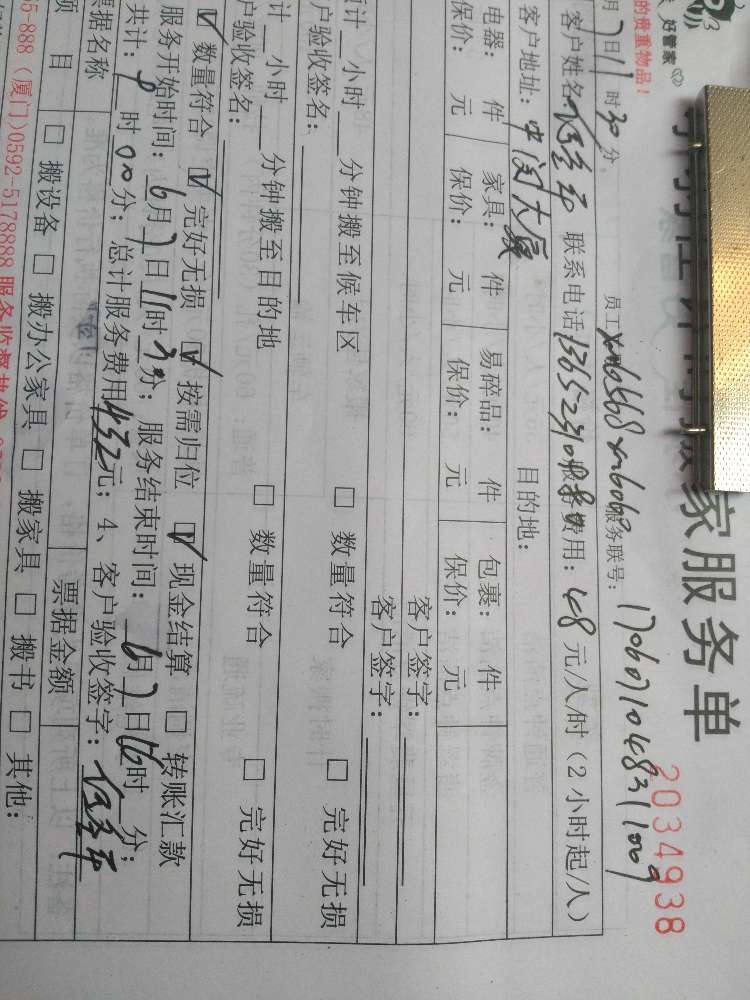 好管家
家服务单
20034938
的贵重物品！
月7日11时30分，
员工
服务联号：
客户姓名
联系电话
服务费用：48元/人/时（2小时起/人）
客户地址：中闽大厦
目的地：
电器： 件 家具： 件 易碎品： 件 包裹： 件
保价： 元 保价： 元 保价： 元 保价： 元
客户签字：
客户签字：
计__小时__分钟搬至候车区 □ 数量符合 □ 完好无损
户验收签名：
计__小时__分钟搬至目的地 □ 数量符合 □ 完好无损
户验收签名：
☑ 数量符合 ☑ 完好无损 ☑ 按需归位 ☑ 现金结算 □ 转账汇款
服务开始时间：6月7日11时 分；服务结束时间：6月7日16时 分；
共计： 时00分；总计服务费用432元；4、客户验收签字：
票据名称
票据金额
项 目 □ 搬设备 □ 搬办公家具 □ 搬家具 □ 搬书 □ 其他：
-888（厦门）0592-5178888 服务监督热线